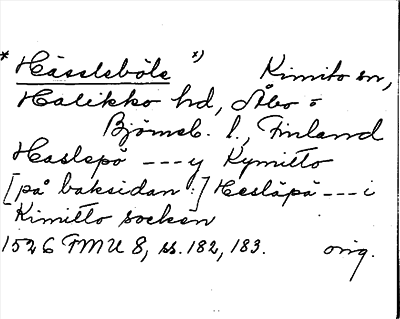 * Hässleböle *) Kimito sn,
Halikko hd, Åbo o
Björneb. l., Finland
Haslepö --- y Kymitto
[på baksidan:] Hesläpä --- i
Kimitto socken
1526 FMU 8, ss. 182, 183. orig.